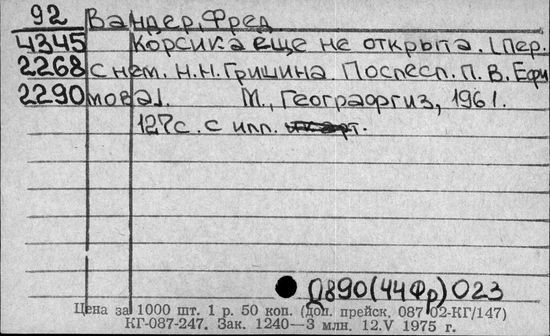 92 Вандер, Фред
4345 Корсика еще не открыта. [Пер.
2268 с нем. Н.Н. Гришина. Послесл. П.В. Ефи
2290 мова].   М., Географгиз, 1961.
127с. с илл.
Д890(44Фр)023
Цена за 1000 шт. 1 р. 50 коп. (доп. прейск. 087-02-КГ/147)
КГ-087-247. Зак. 1240—3 млн. 12.V 1975 г.